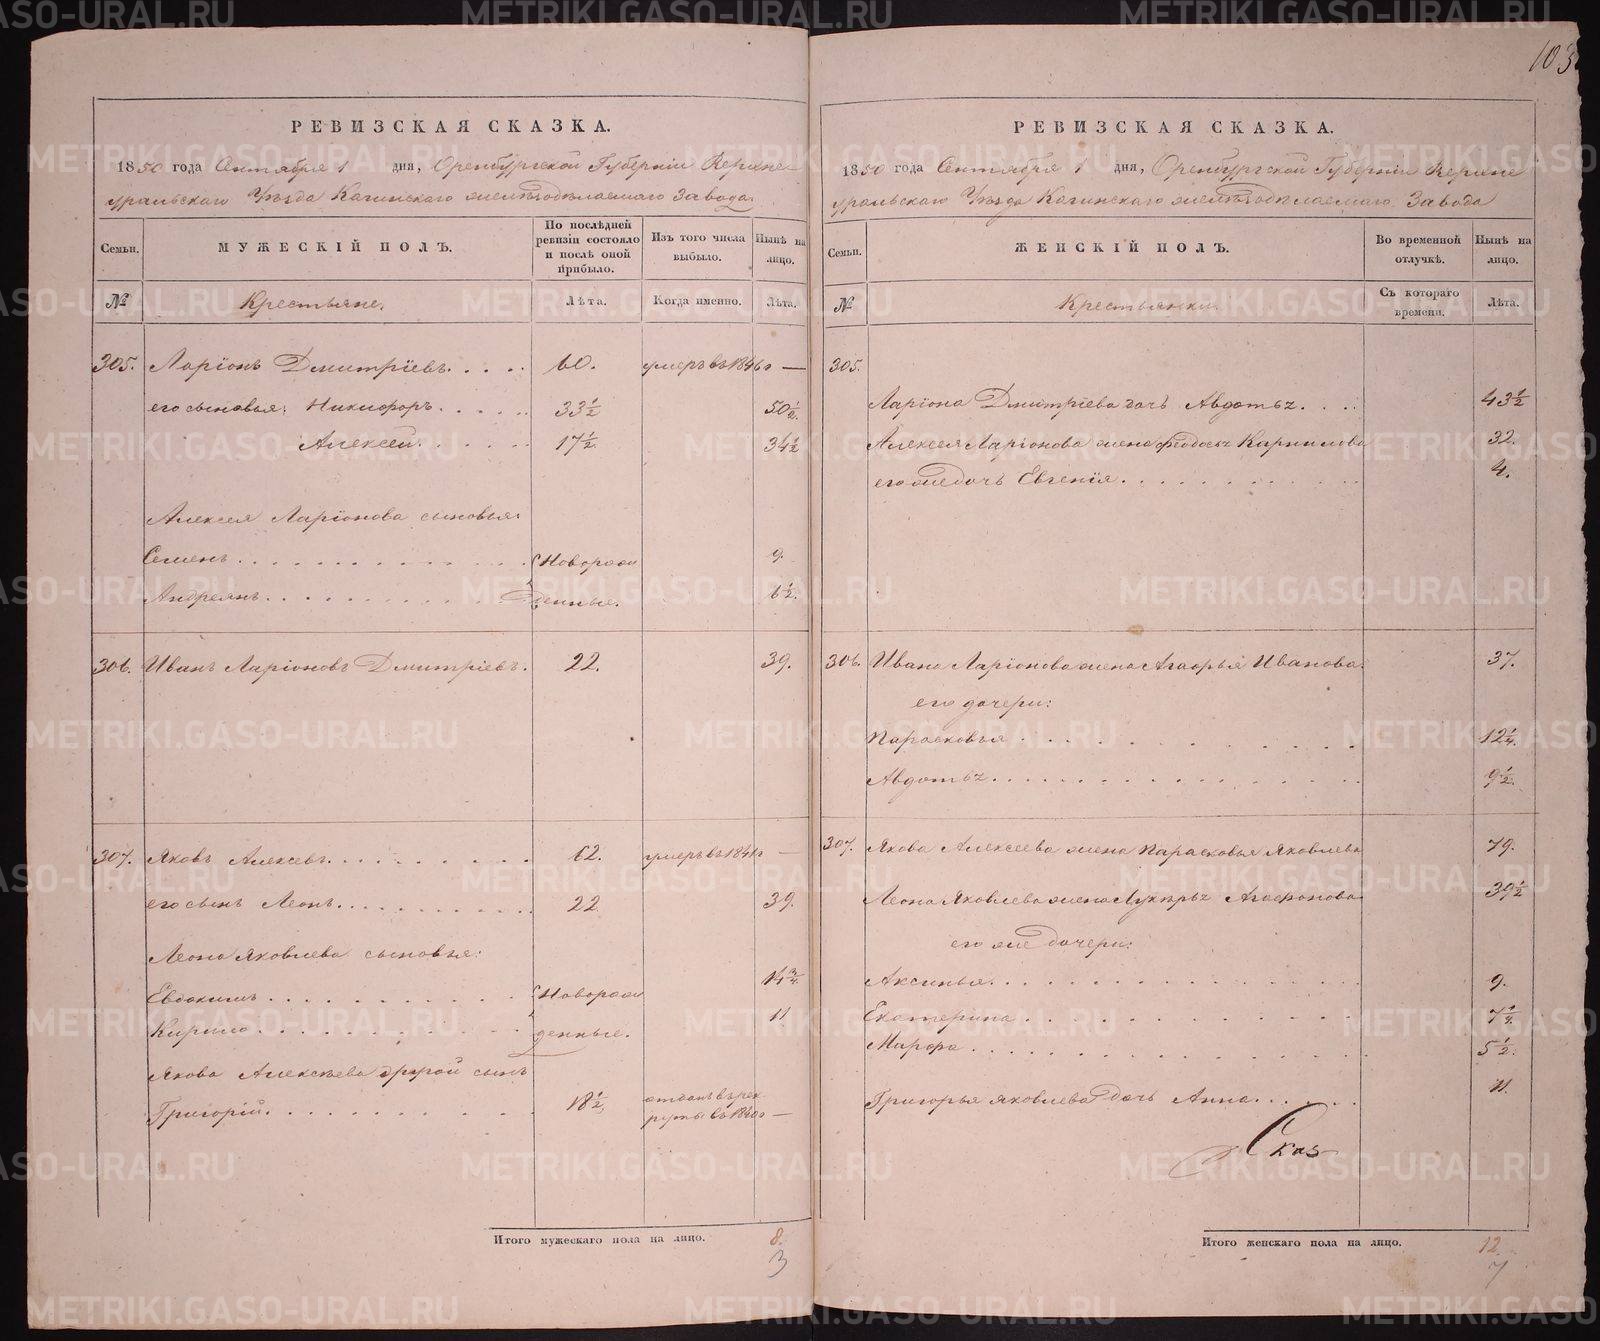 103
РЕВИЗСКАЯ СКАЗКА.
1850 года Сентября 1 дня, Оренбургской Губерніи Верхне-
уральскаго Уѣзда Кагинскаго желѣзодѣлаемаго Завода.
Семьи. МУЖЕСКІЙ ПОЛЪ. По послѣдней ревизіи состояло и послѣ оной прибыло. Изъ того числа выбыло. Нынѣ на лицо.
№ Крестьяне. Лѣта. Когда именно. Лѣта.
305. Ларіонъ Дмитріевъ. 60. умеръ въ 1846 —
его сыновья: Никифоръ. 33½ 50½.
Алексей. 17½. 34½
Алексея Ларіонова сыновья:
Семенъ. Новорож 9.
Андреянъ. денные. 6½.
306. Иванъ Ларіоновъ Дмитріевъ. 22. 39.
307. Яковъ Алексевъ. 62. умеръ въ 1841 —
его сынъ Леонъ. 22. 39.
Леона Яковлева сыновья:
Евдокимъ. Новорож 14¾.
Кирило. денные. 11
Якова Алексѣева другой сынъ
Григорій. 18½, отданъ въ рек
руты въ 1840 —
Итого мужескаго пола на лицо. 8.
3
РЕВИЗСКАЯ СКАЗКА.
1850 года Сентября 1 дня, Оренбургской Губерніи Верхне
уральскаго Уѣзда Кагинскаго желѣзодѣлаемаго Завода
Семьи. ЖЕНСКІЙ ПОЛЪ. Во временной отлучкѣ. Нынѣ на лицо.
№ Крестьянки. Съ котораго времени. Лѣта.
305.
Ларіона Дмитріева дочь Авдотья. 43½
Алексея Ларіонова жена Федосья Карпилова 32.
его же дочь Евгенія. 4.
306. Ивана Ларіонова жена Агафья Иванова. 37.
его дочери:
Парасковья 12¼.
Авдотья. 9½.
307. Якова Алексеева жена Парасковья Яковлева 79.
Леона Яковлева жена Лукерья Агафонова 39½
его же дочери:
Аксинья. 9.
Екатерина 7¼.
Марфа. 5½.
Григорья Яковлева дочь Анна. 11.
Сказ
Итого женскаго пола на лицо. 12.
7
METRIKI.GASO-URAL.RU